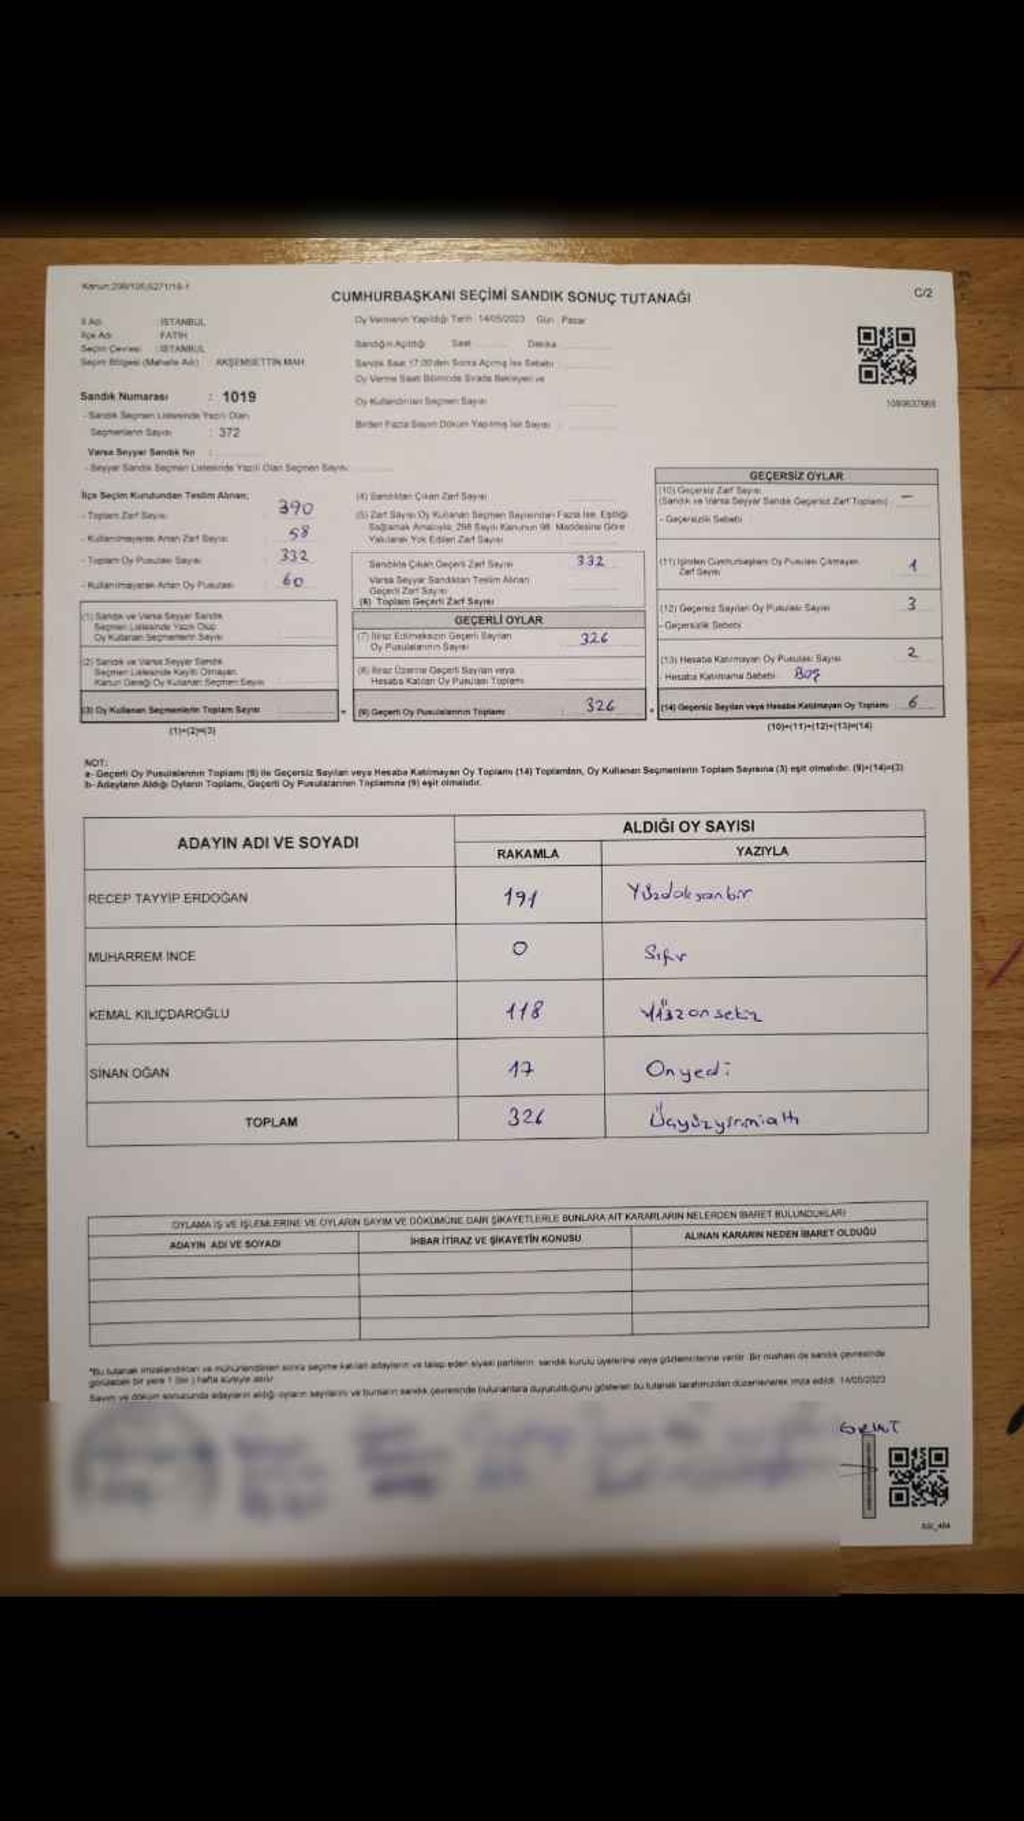 Kanun:298/106;6271/16-1
C/2
CUMHURBAŞKANI SEÇİMİ SANDIK SONUÇ TUTANAĞI
İl Adı : İSTANBUL
İlçe Adı : FATİH
Seçim Çevresi : İSTANBUL
Seçim Bölgesi (Mahalle Adı) : AKŞEMSETTİN MAH.
Sandık Numarası : 1019
- Sandık Seçmen Listesinde Yazılı Olan
Seçmenlerin Sayısı : 372
Varsa Seyyar Sandık No :
- Seyyar Sandık Seçmen Listesinde Yazılı Olan Seçmen Sayısı
Oy Vermenin Yapıldığı Tarih 14/05/2023 Gün Pazar
Sandığın Açıldığı Saat Dakika
Sandık Saat 17.00'den Sonra Açılmış İse Sebebi
Oy Verme Saati Bitiminde Sırada Bekleyen ve
Oy Kullandırılan Seçmen Sayısı
Birden Fazla Sayım Döküm Yapılmış İse Sayısı
İlçe Seçim Kurulundan Teslim Alınan;
- Toplam Zarf Sayısı 390
- Kullanılmayarak Artan Zarf Sayısı 58
- Toplam Oy Pusulası Sayısı 332
- Kullanılmayarak Artan Oy Pusulası 60
(1) Sandık ve Varsa Seyyar Sandık
Seçmen Listesinde Yazılı Olup
Oy Kullanan Seçmenlerin Sayısı
(2) Sandık ve Varsa Seyyar Sandık
Seçmen Listesinde Kayıtlı Olmayan
Kanun Gereği Oy Kullanan Seçmen Sayısı
(3) Oy Kullanan Seçmenlerin Toplam Sayısı
(1)+(2)=(3)
(4) Sandıktan Çıkan Zarf Sayısı
(5) Zarf Sayısı Oy Kullanan Seçmen Sayısından Fazla İse, Eşitliği
Sağlamak Amacıyla, 298 Sayılı Kanunun 98. Maddesine Göre
Yakılarak Yok Edilen Zarf Sayısı
Sandıkta Çıkan Geçerli Zarf Sayısı 332
Varsa Seyyar Sandıktan Teslim Alınan
Geçerli Zarf Sayısı
(6) Toplam Geçerli Zarf Sayısı
GEÇERLİ OYLAR
(7) İtiraz Edilmeksizin Geçerli Sayılan
Oy Pusulalarının Sayısı 326
(8) İtiraz Üzerine Geçerli Sayılan veya
Hesaba Katılan Oy Pusulası Toplamı
(9) Geçerli Oy Pusulalarının Toplamı : 326
GEÇERSİZ OYLAR
(10) Geçersiz Zarf Sayısı
(Sandık ve Varsa Seyyar Sandık Geçersiz Zarf Toplamı) —
- Geçersizlik Sebebi
(11) İçinden Cumhurbaşkanı Oy Pusulası Çıkmayan
Zarf Sayısı 1
(12) Geçersiz Sayılan Oy Pusulası Sayısı 3
- Geçersizlik Sebebi
(13) Hesaba Katılmayan Oy Pusulası Sayısı 2
- Hesaba Katılmama Sebebi Boş
(14) Geçersiz Sayılan veya Hesaba Katılmayan Oy Toplamı 6
(10)+(11)+(12)+(13)=(14)
NOT:
a- Geçerli Oy Pusulalarının Toplamı (9) ile Geçersiz Sayılan veya Hesaba Katılmayan Oy Toplamı (14) Toplamları, Oy Kullanan Seçmenlerin Toplam Sayısına (3) eşit olmalıdır. (9)+(14)=(3)
b- Adayların Aldığı Oyların Toplamı, Geçerli Oy Pusulalarının Toplamına (9) eşit olmalıdır.
ADAYIN ADI VE SOYADI
ALDIĞI OY SAYISI
RAKAMLA YAZIYLA
RECEP TAYYİP ERDOĞAN 191 Yüzdoksanbir
MUHARREM İNCE 0 Sıfır
KEMAL KILIÇDAROĞLU 118 Yüzonsekiz
SİNAN OĞAN 17 Onyedi
TOPLAM 326 Üçyüzyirmialtı
OYLAMA İŞ VE İŞLEMLERİNE VE OYLARIN SAYIM VE DÖKÜMÜNE DAİR ŞİKAYETLERLE BUNLARA AİT KARARLARIN NELERDEN İBARET BULUNDUKLARI
ADAYIN ADI VE SOYADI İHBAR İTİRAZ VE ŞİKAYETİN KONUSU ALINAN KARARIN NEDEN İBARET OLDUĞU
*Bu tutanak imzalandıktan ve mühürlendikten sonra seçime katılan adayların ve talep eden siyasi partilerin, sandık kurulu üyelerine veya gözlemcilerine verilir. Bir nüshası da sandık çevresinde
görülebilir bir yere 1 (bir) hafta süreyle asılır.
Sayım ve döküm sonucunda adayların aldığı oyların sayılarını ve bunların sandık çevresinde bulunanlara duyurulduğunu gösteren bu tutanak tarafımızdan düzenlenerek imza edildi. 14/05/2023